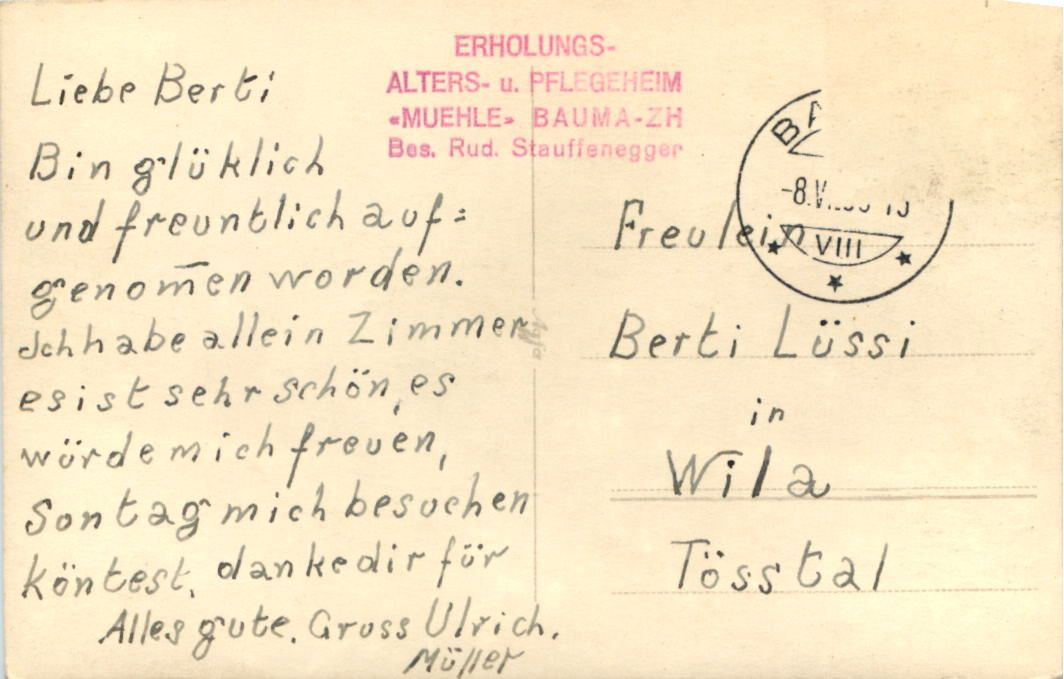 Liebe Berti
Bin glüklich
und freuntlich auf=
genom̅en worden.
Ich habe allein Zimmer
es ist sehr schön, es
würde mich freuen,
Sontag mich besuchen
köntest. danke dir für
Alles gute. Gruss Ulrich.
Müller
ERHOLUNGS-
ALTERS- u. PFLEGEHEIM
«MUEHLE» BAUMA-ZH
Bes. Rud. Stauffenegger
VIII
Freulein
Berti Lüssi
in
Wila
Tösstal